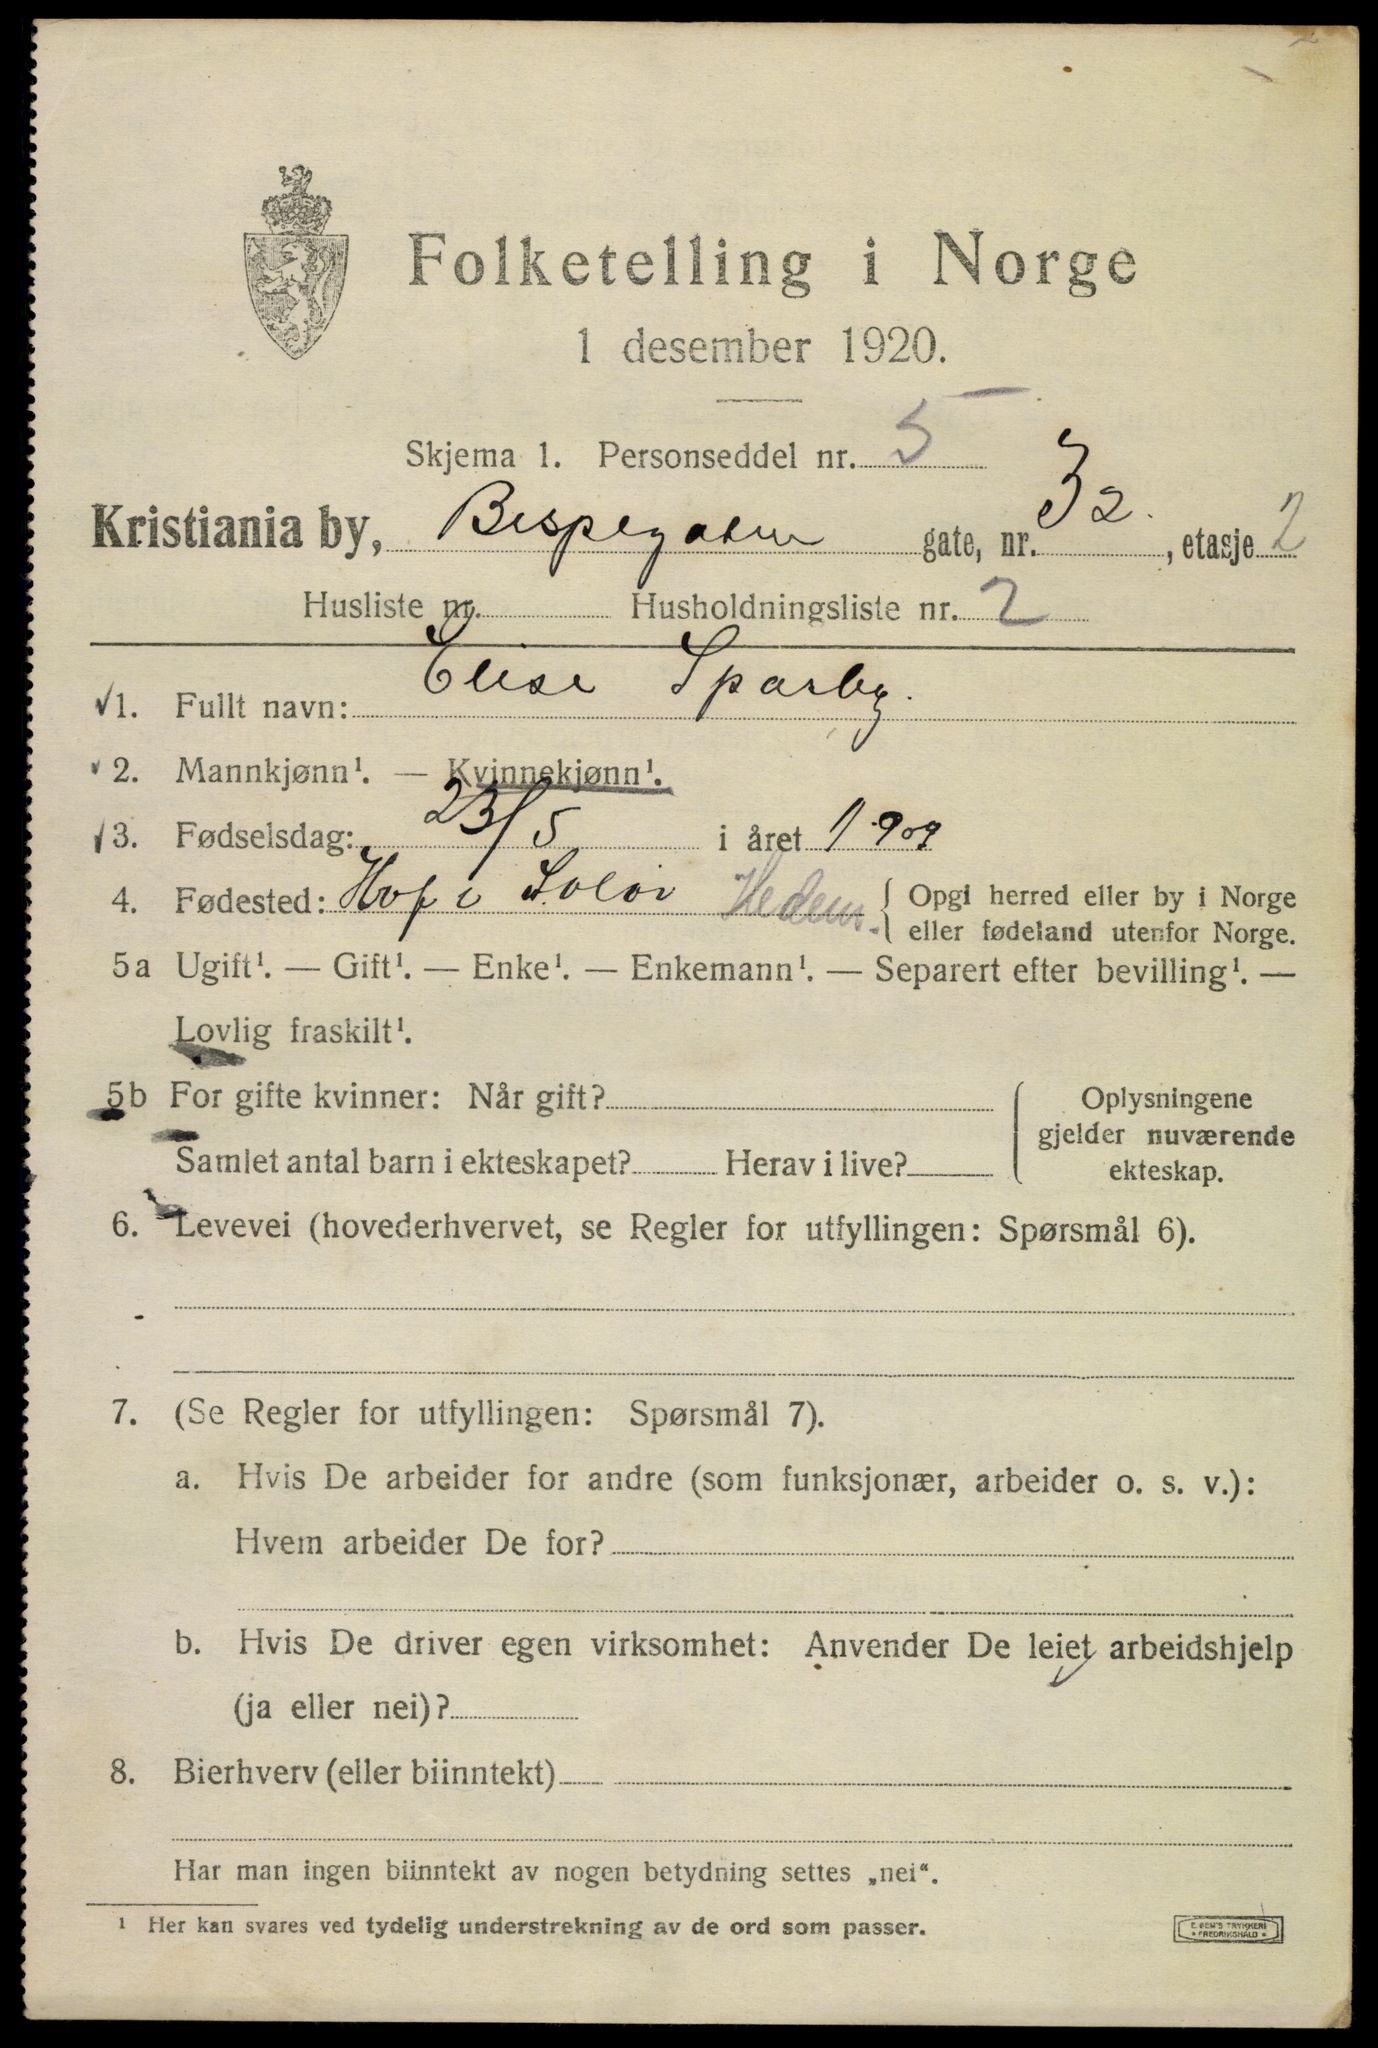 Folketelling i Norge
1 desember 1920.
Skjema 1. Personseddel nr. 5
Kristiania by, Bispegaten gate, nr. 32. , etasje 2
Husliste nr. Husholdningsliste nr. 2
1. Fullt navn: Elise Sparby.
2. Mannkjønn¹. — Kvinnekjønn¹.
3. Fødselsdag: 23/5 i året 1909
4. Fødested: Hof i Solør Hedem. { Opgi herred eller by i Norge
eller fødeland utenfor Norge.
5a Ugift¹. — Gift¹. — Enke¹. — Enkemann¹. — Separert efter bevilling¹. —
Lovlig fraskilt¹.
5b For gifte kvinner: Når gift?
Samlet antal barn i ekteskapet? Herav i live?
Oplysningene
gjelder nuværende
ekteskap.
6. Levevei (hovederhvervet, se Regler for utfyllingen: Spørsmål 6).
7. (Se Regler for utfyllingen: Spørsmål 7).
a. Hvis De arbeider for andre (som funksjonær, arbeider o. s. v.):
Hvem arbeider De for?
b. Hvis De driver egen virksomhet: Anvender De leiet arbeidshjelp
(ja eller nei)?
8. Bierhverv (eller biinntekt)
Har man ingen biinntekt av nogen betydning settes „nei“.
¹ Her kan svares ved tydelig understrekning av de ord som passer.
E. SEM'S TRYKKERI
* FREDRIKSHALD *